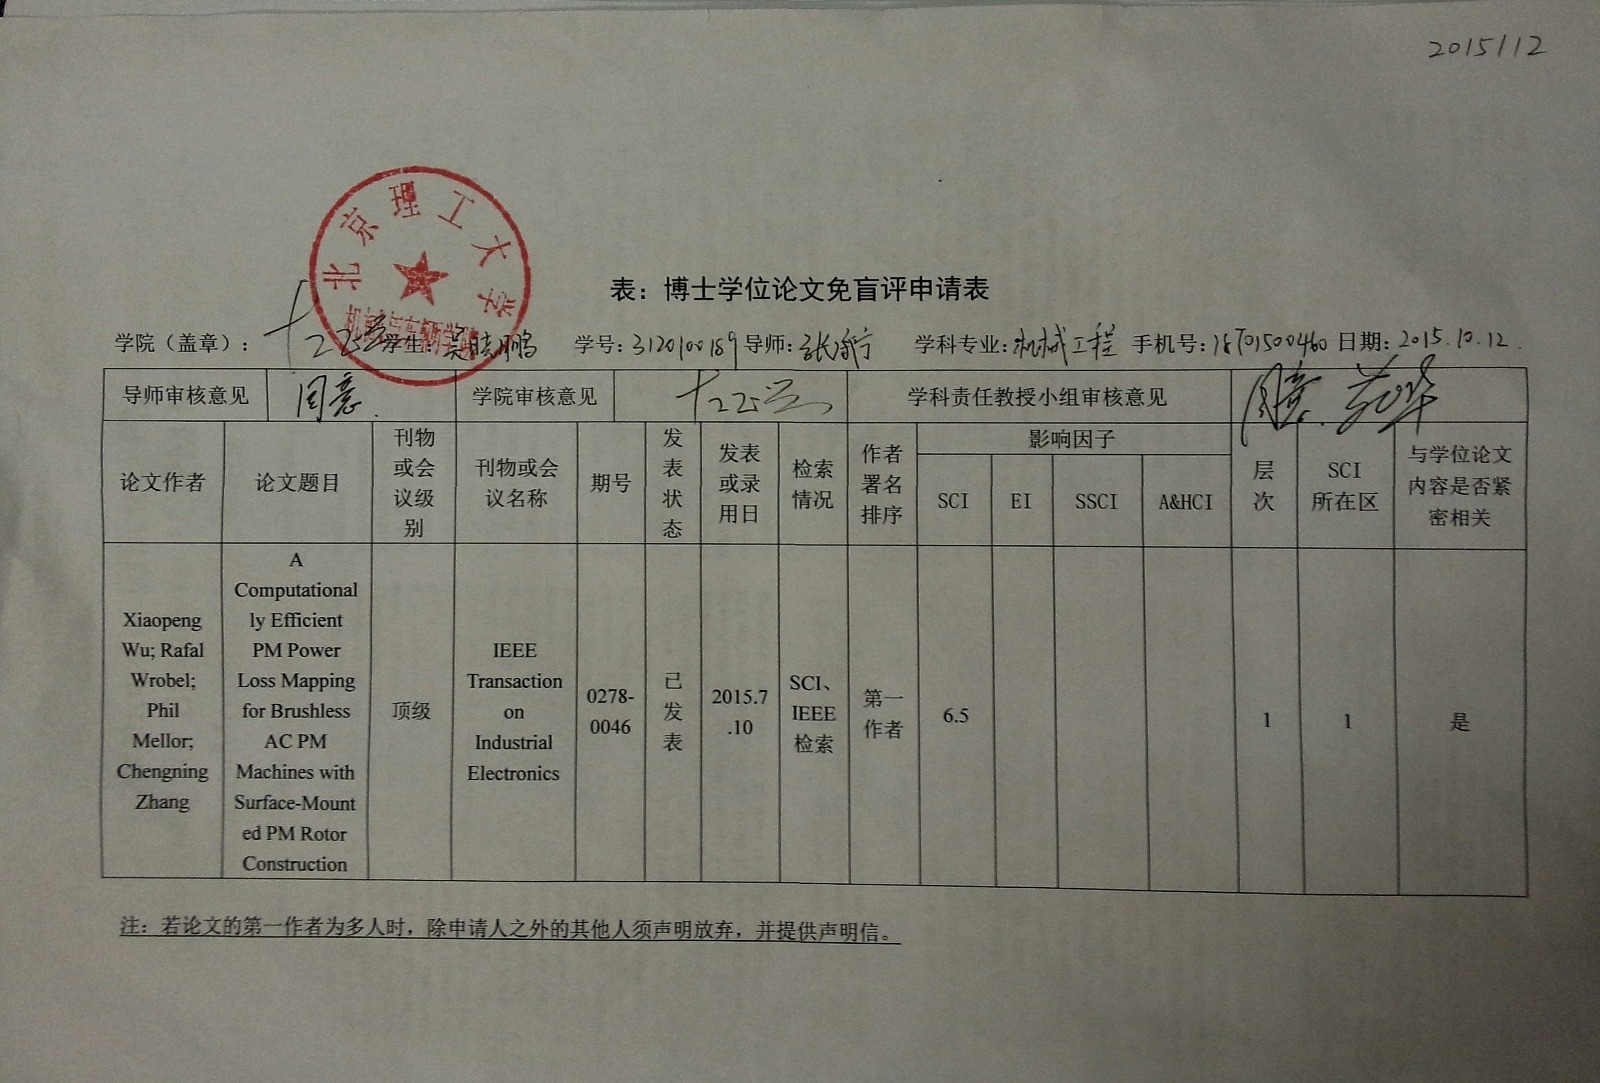 2015/12
北京理工大学
表：博士学位论文免盲评申请表
学院（盖章）： 学生：吴晓鹏 学号：3120100189 导师：张承宁 学科专业：机械工程 手机号：18701500460 日期：2015.10.12.
导师审核意见 同意. 学院审核意见 学科责任教授小组审核意见 同意.
论文作者 论文题目 刊物或会议级别 刊物或会议名称 期号 发表状态 发表或录用日 检索情况 作者署名排序 影响因子 层次 SCI所在区 与学位论文内容是否紧密相关
SCI EI SSCI A&HCI
Xiaopeng Wu; Rafal Wrobel; Phil Mellor; Chengning Zhang
A Computationally Efficient PM Power Loss Mapping for Brushless AC PM Machines with Surface-Mounted PM Rotor Construction
顶级
IEEE Transaction on Industrial Electronics
0278-0046
已发表
2015.7.10
SCI、IEEE检索
第一作者
6.5
1
1
是
注：若论文的第一作者为多人时，除申请人之外的其他人须声明放弃，并提供声明信。